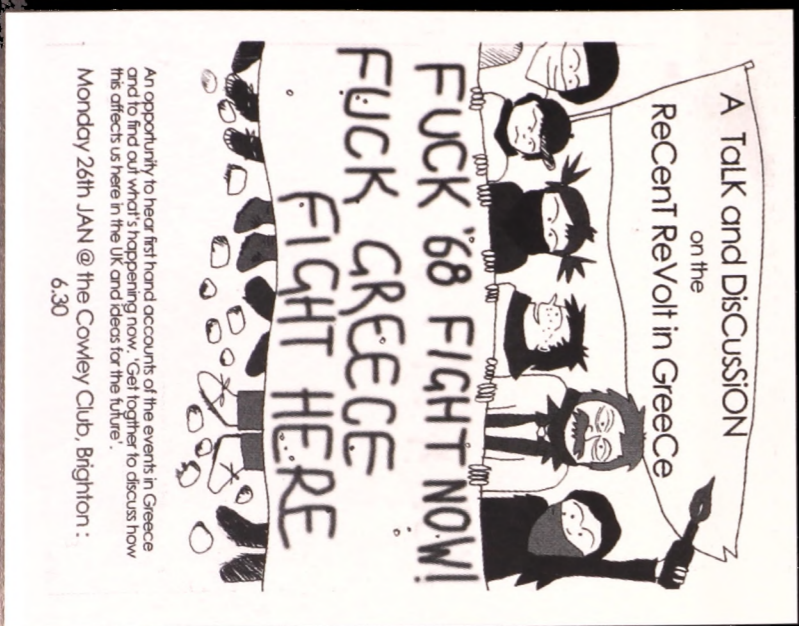 A TaLK and DisCusSiON
on the
ReCenT ReVolt in GreeCe
FUCK '68 FIGHT NOW!
FUCK GREECE
FIGHT HERE
An opportunity to hear first hand accounts of the events in Greece
and to find out what's happening now. 'Get togther to discuss how
this affects us here in the UK and ideas for the future'.
Monday 26th JAN @ the Cowley Club, Brighton :
6.30